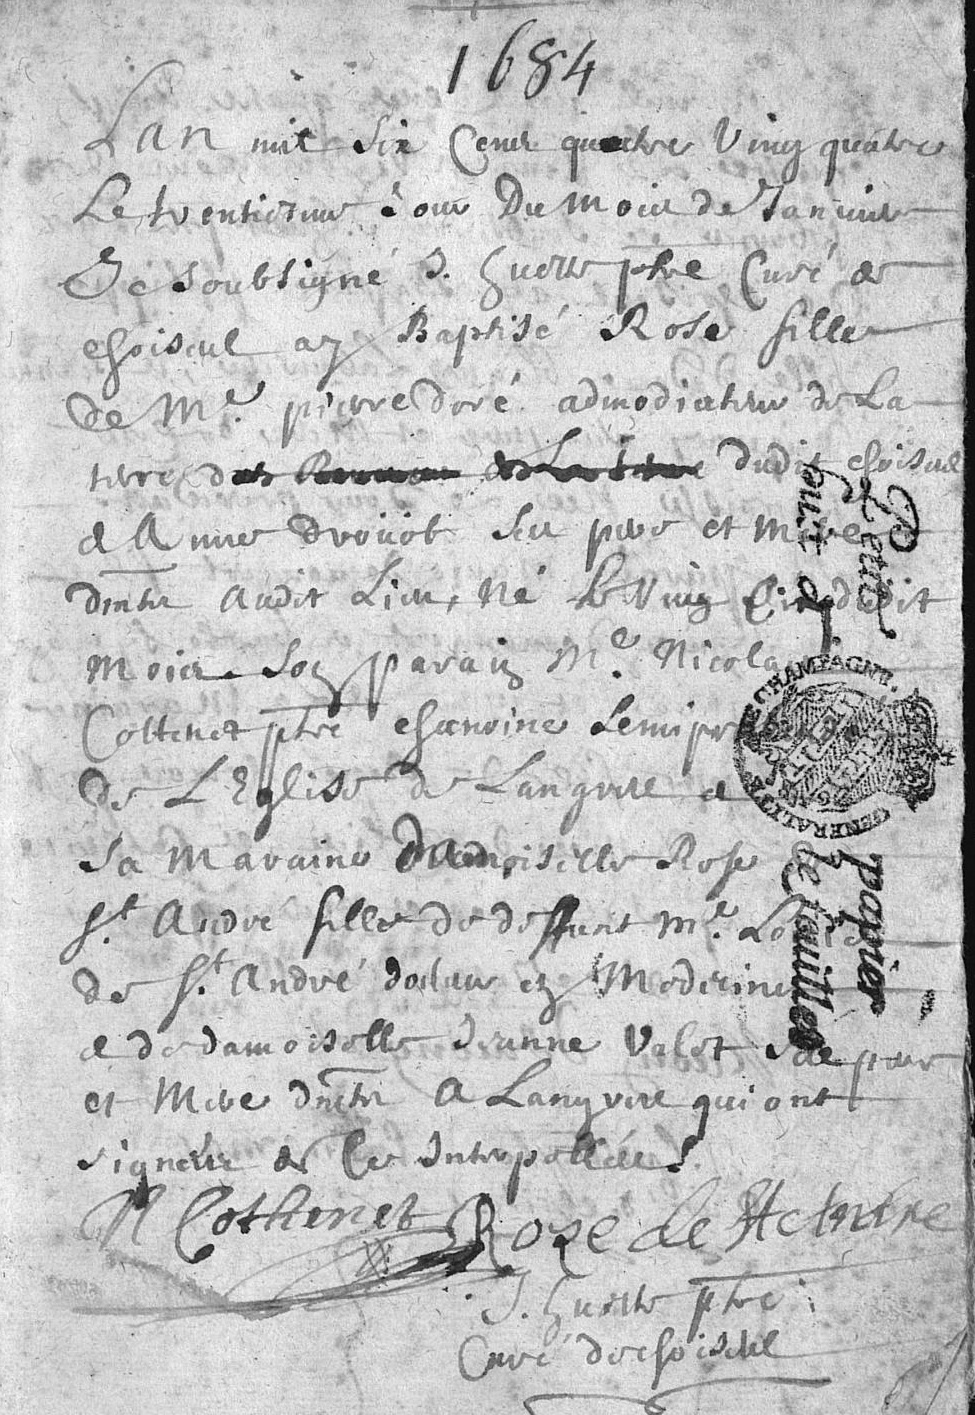 1684
Lan mil six Cens quatre Ving quatre
Le trentiesme Jour Du Mois de Janvier
Je soubsigné J. huette ptre Curé de
choiseul ay Baptisé Rose fille
de Mre. pierre doré admodiateur de La
terre dudit choiseul
& Anne drouot ses pere et Mere
dmts Audit Lieu, Né le Ving dudit
Mois. Son parain Mre. Nicolas
Cottenet ptre chanoine semiprebendé
de L'Eglise de Langres &
sa Maraine damoiselle Rose
St. André fille de deffunt Mre. Louis
de St. André docteur en Medecine
& de damoiselle Jeanne Valot ses pere
et Mere dmts A Langres qui ont
signés de Ce Interpellées.
N Cothenet Roze de St Andre
J. huette ptre
Curé de choiseul
Petit papier
huit d. la feuille
GENERALITE DE CHAMPAGNE